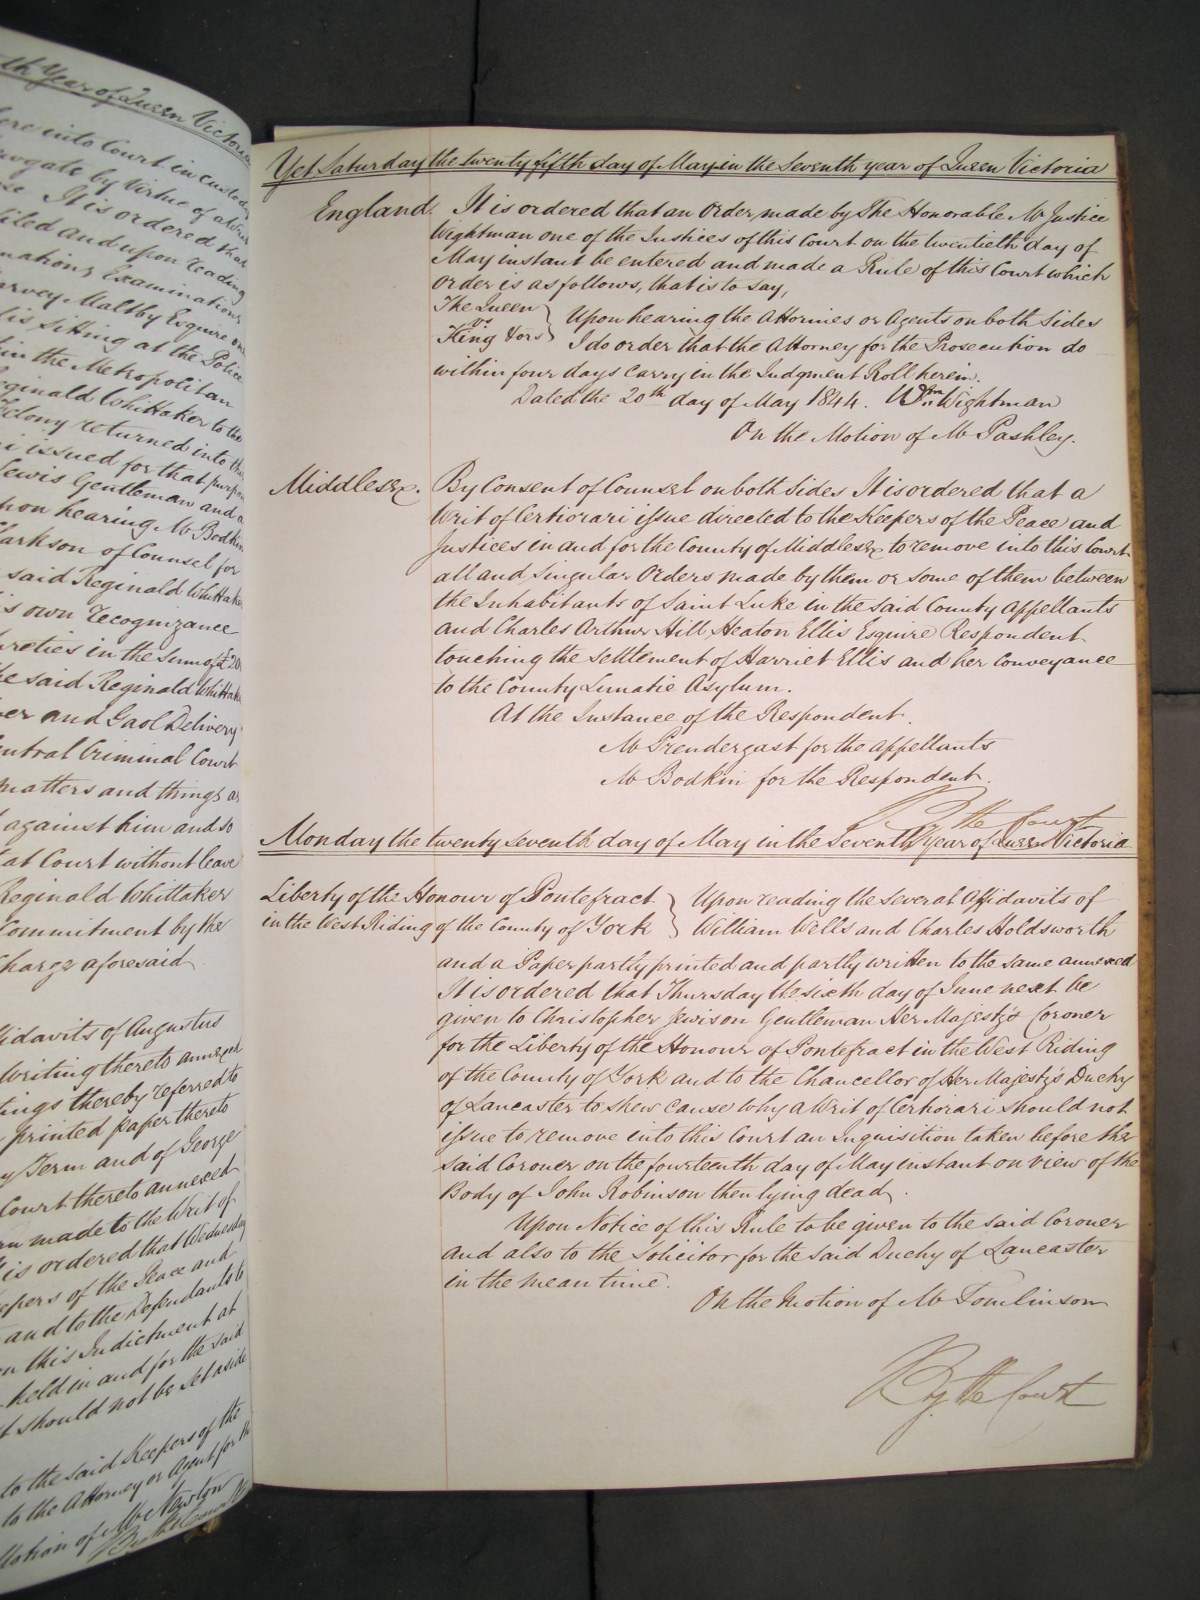 th Year of Queen Victoria
ere into Court in custody
ewgate by virtue of a Writ
se It is ordered that
filed and upon reading
mations Examinations
arvey Maltby Esquire one
is sitting at the Police
in the Metropolitan
eginald Whittaker to the
Felony returned into the
i issued for that purpose
Lewis Gentleman and a
pon hearing Mr Bodkin
larkson of Counsel for
said Reginald Whittaker
is own Recognizance
ureties in the Sum of £20
he said Reginald Whittaker
er and Gaol Delivery
entral Criminal Court
matters and things as
against him and so
at Court without leave
Reginald Whittaker
Commitment by the
Charge aforesaid
fidavits of Augustus
Writing thereto annexed
tings thereby referred to
printed paper thereto
y Term and of George
Court thereto annexed
rn made to the Writ of
is ordered that Wednesday
epers of the Peace and
and to the Defendants to
n this Indictment at
held in and for the said
t should not be set aside
to the said Keepers of the
to the Attorney or Agent for the
Motion of Mr Newton
By the Court
Yet Saturday the twenty fifth day of May in the Seventh year of Queen Victoria
England. It is ordered that an Order made by The Honorable Mr Justice
Wightman one of the Justices of this Court on the twentieth day of
May instant be entered and made a Rule of this Court which
Order is as follows, that is to say,
The Queen
vs
King & ors } Upon hearing the Attornies or Agents on both Sides
I do order that the Attorney for the Prosecution do
within four days carry in the Judgment Roll herein.
Dated the 20th day of May 1844. Wm Wightman
On the Motion of Mr Pashley.
Middlesex. By Consent of Counsel on both Sides It is ordered that a
Writ of Certiorari issue directed to the Keepers of the Peace and
Justices in and for the County of Middlesex to remove into this Court
all and Singular Orders made by them or some of them between
the Inhabitants of Saint Luke in the said County Appellants
and Charles Arthur Hill Heaton Ellis Esquire Respondent
touching the settlement of Harriet Ellis and her conveyance
to the County Lunatic Asylum.
At the Instance of the Respondent.
Mr Prendergast for the Appellants
Mr Bodkin for the Respondent.
By the Court
Monday the twenty seventh day of May in the Seventh year of Queen Victoria
Liberty of the Honour of Pontefract
in the West Riding of the County of York } Upon reading the several Affidavits of
William Wells and Charles Holdsworth
and a Paper partly printed and partly written to the same annexed
It is ordered that Thursday the sixth day of June next be
given to Christopher Jewison Gentleman Her Majesty's Coroner
for the Liberty of the Honour of Pontefract in the West Riding
of the County of York and to the Chancellor of Her Majesty's Duchy
of Lancaster to shew cause why a Writ of Certiorari should not
issue to remove into this Court an Inquisition taken before the
said Coroner on the fourteenth day of May instant on view of the
Body of John Robinson then lying dead.
Upon Notice of this Rule to be given to the said Coroner
and also to the Solicitor for the said Duchy of Lancaster
in the mean time.
On the Motion of Mr Tomlinson
By the Court